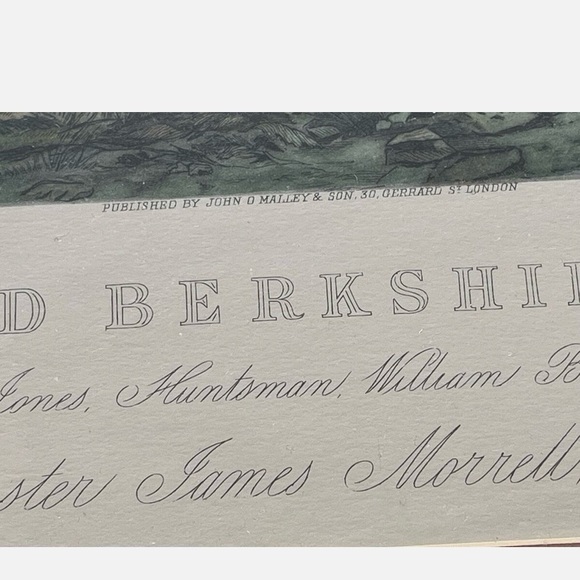 PUBLISHED BY JOHN O MALLEY & SON, 30, GERRARD ST LONDON
D BERKSHI
Jones, Huntsman, William B
ster James Morrell,